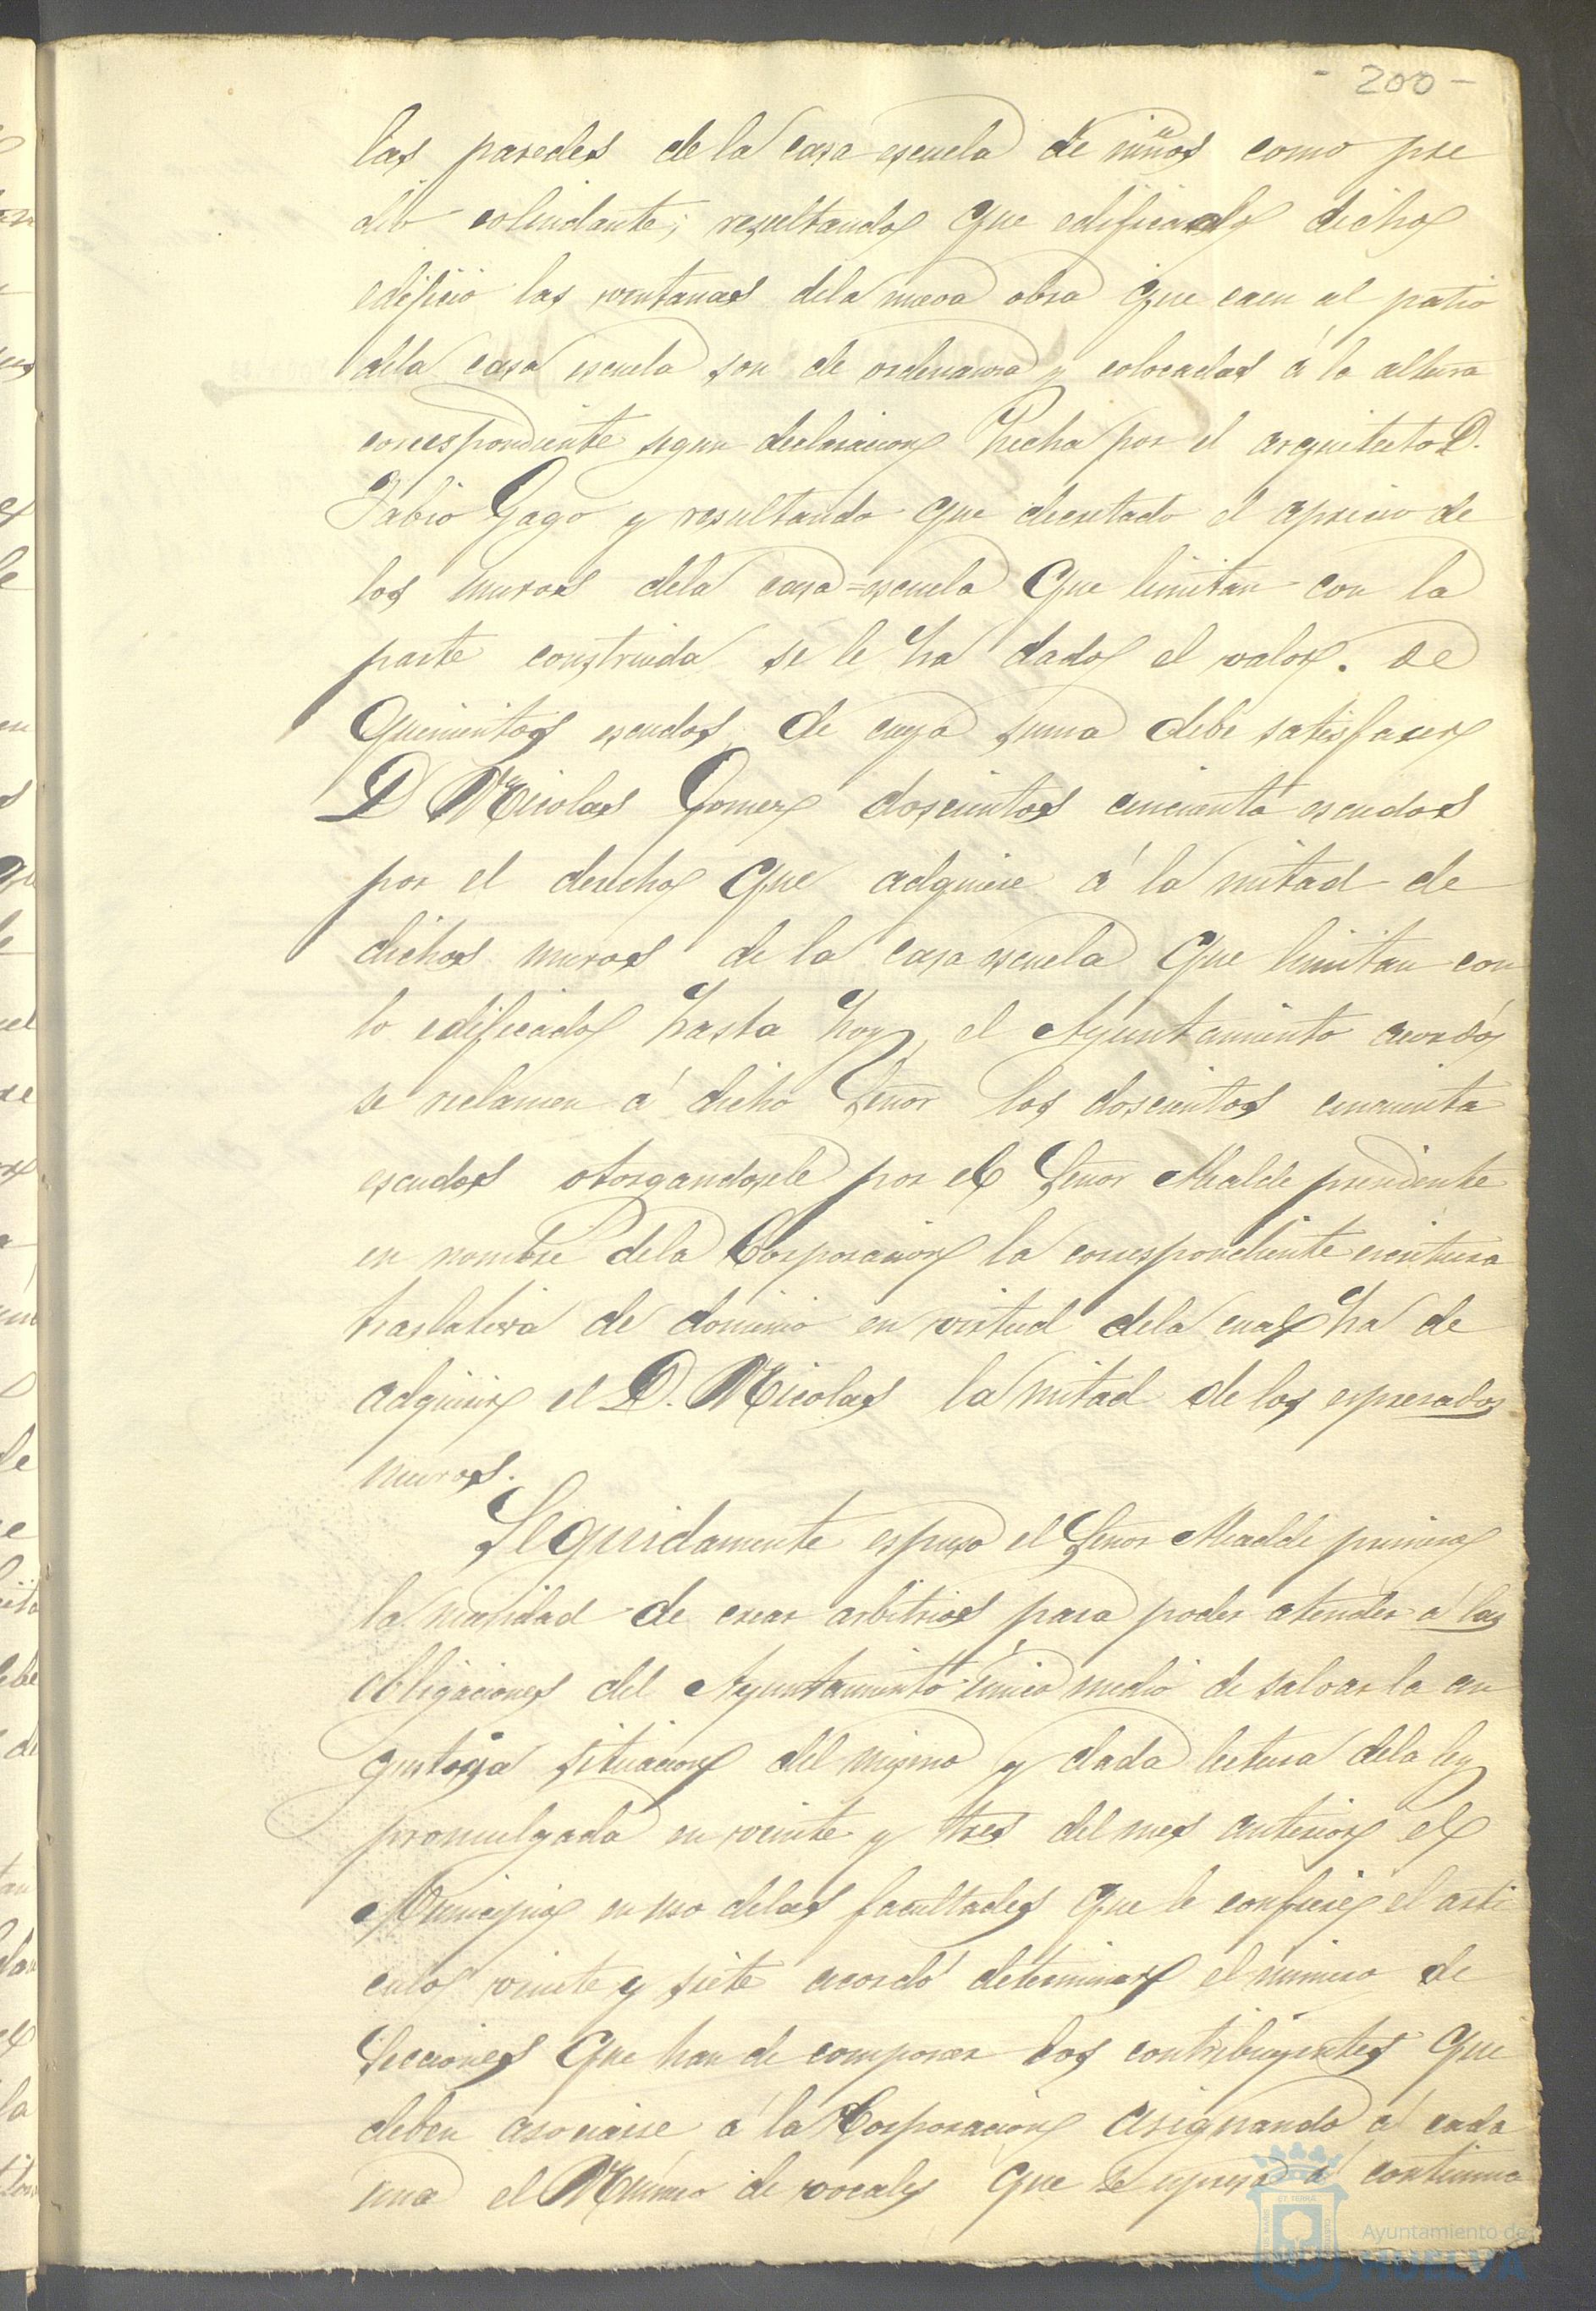 - 200 -
las paredes de la casa escuela de niños como pre
dio colindante; resultando que edificado dicho
edificio las ventanas dela nueva obra que caen al patio
dela casa escuela son de ordenanza y colocadas á la altura
correspondiente segun declaracion hecha por el arquitecto D.
Fabio Gago y resultando que decretado el aprecio de
los muros dela casa=escuela que limitan con la
parte construida se le ha dado el valor. de
quinientos escudos, de cuya suma debe satisfacer
D Nicolas Gomez doscientos cincuenta escudos
por el derecho que adquiere á la mitad de
dichos muros de la casa escuela que limitan con
lo edificado hasta hoy, el Ayuntamiento acordó
se reclamen á dicho Señor los doscientos cincuenta
escudos otorgandosele por el Señor Alcalde presidente
en nombre dela Corporacion la correspondiente escritura
traslativa de dominio en virtud dela cual ha de
adquirir el D. Nicolas la mitad de los espresados
muros.
Seguidamente espuso el Señor Alcalde primero
la necesidad de crear arbitrios para poder atender á las
obligaciones del Ayuntamiento único medio de salvar la an
gustosa situacion del mismo y dada lectura dela ley
promulgada en veinte y tres del mes anterior el
Municipio en uso delas facultades que le confiere el arti
culo veinte y siete acordó determinar el número de
Secciones que han de componer los contribuyentes que
deben asociarse á la Corporacion asignando á cada
una el Número de vocales que se espresa á continua
Ayuntamiento de
HUELVA